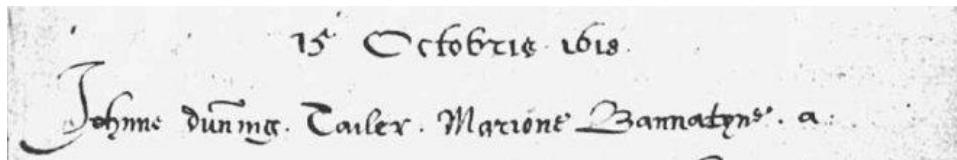 15 Octobris 1618
Johnne dun̄ing. Tailer. Marione Bannatyne. a